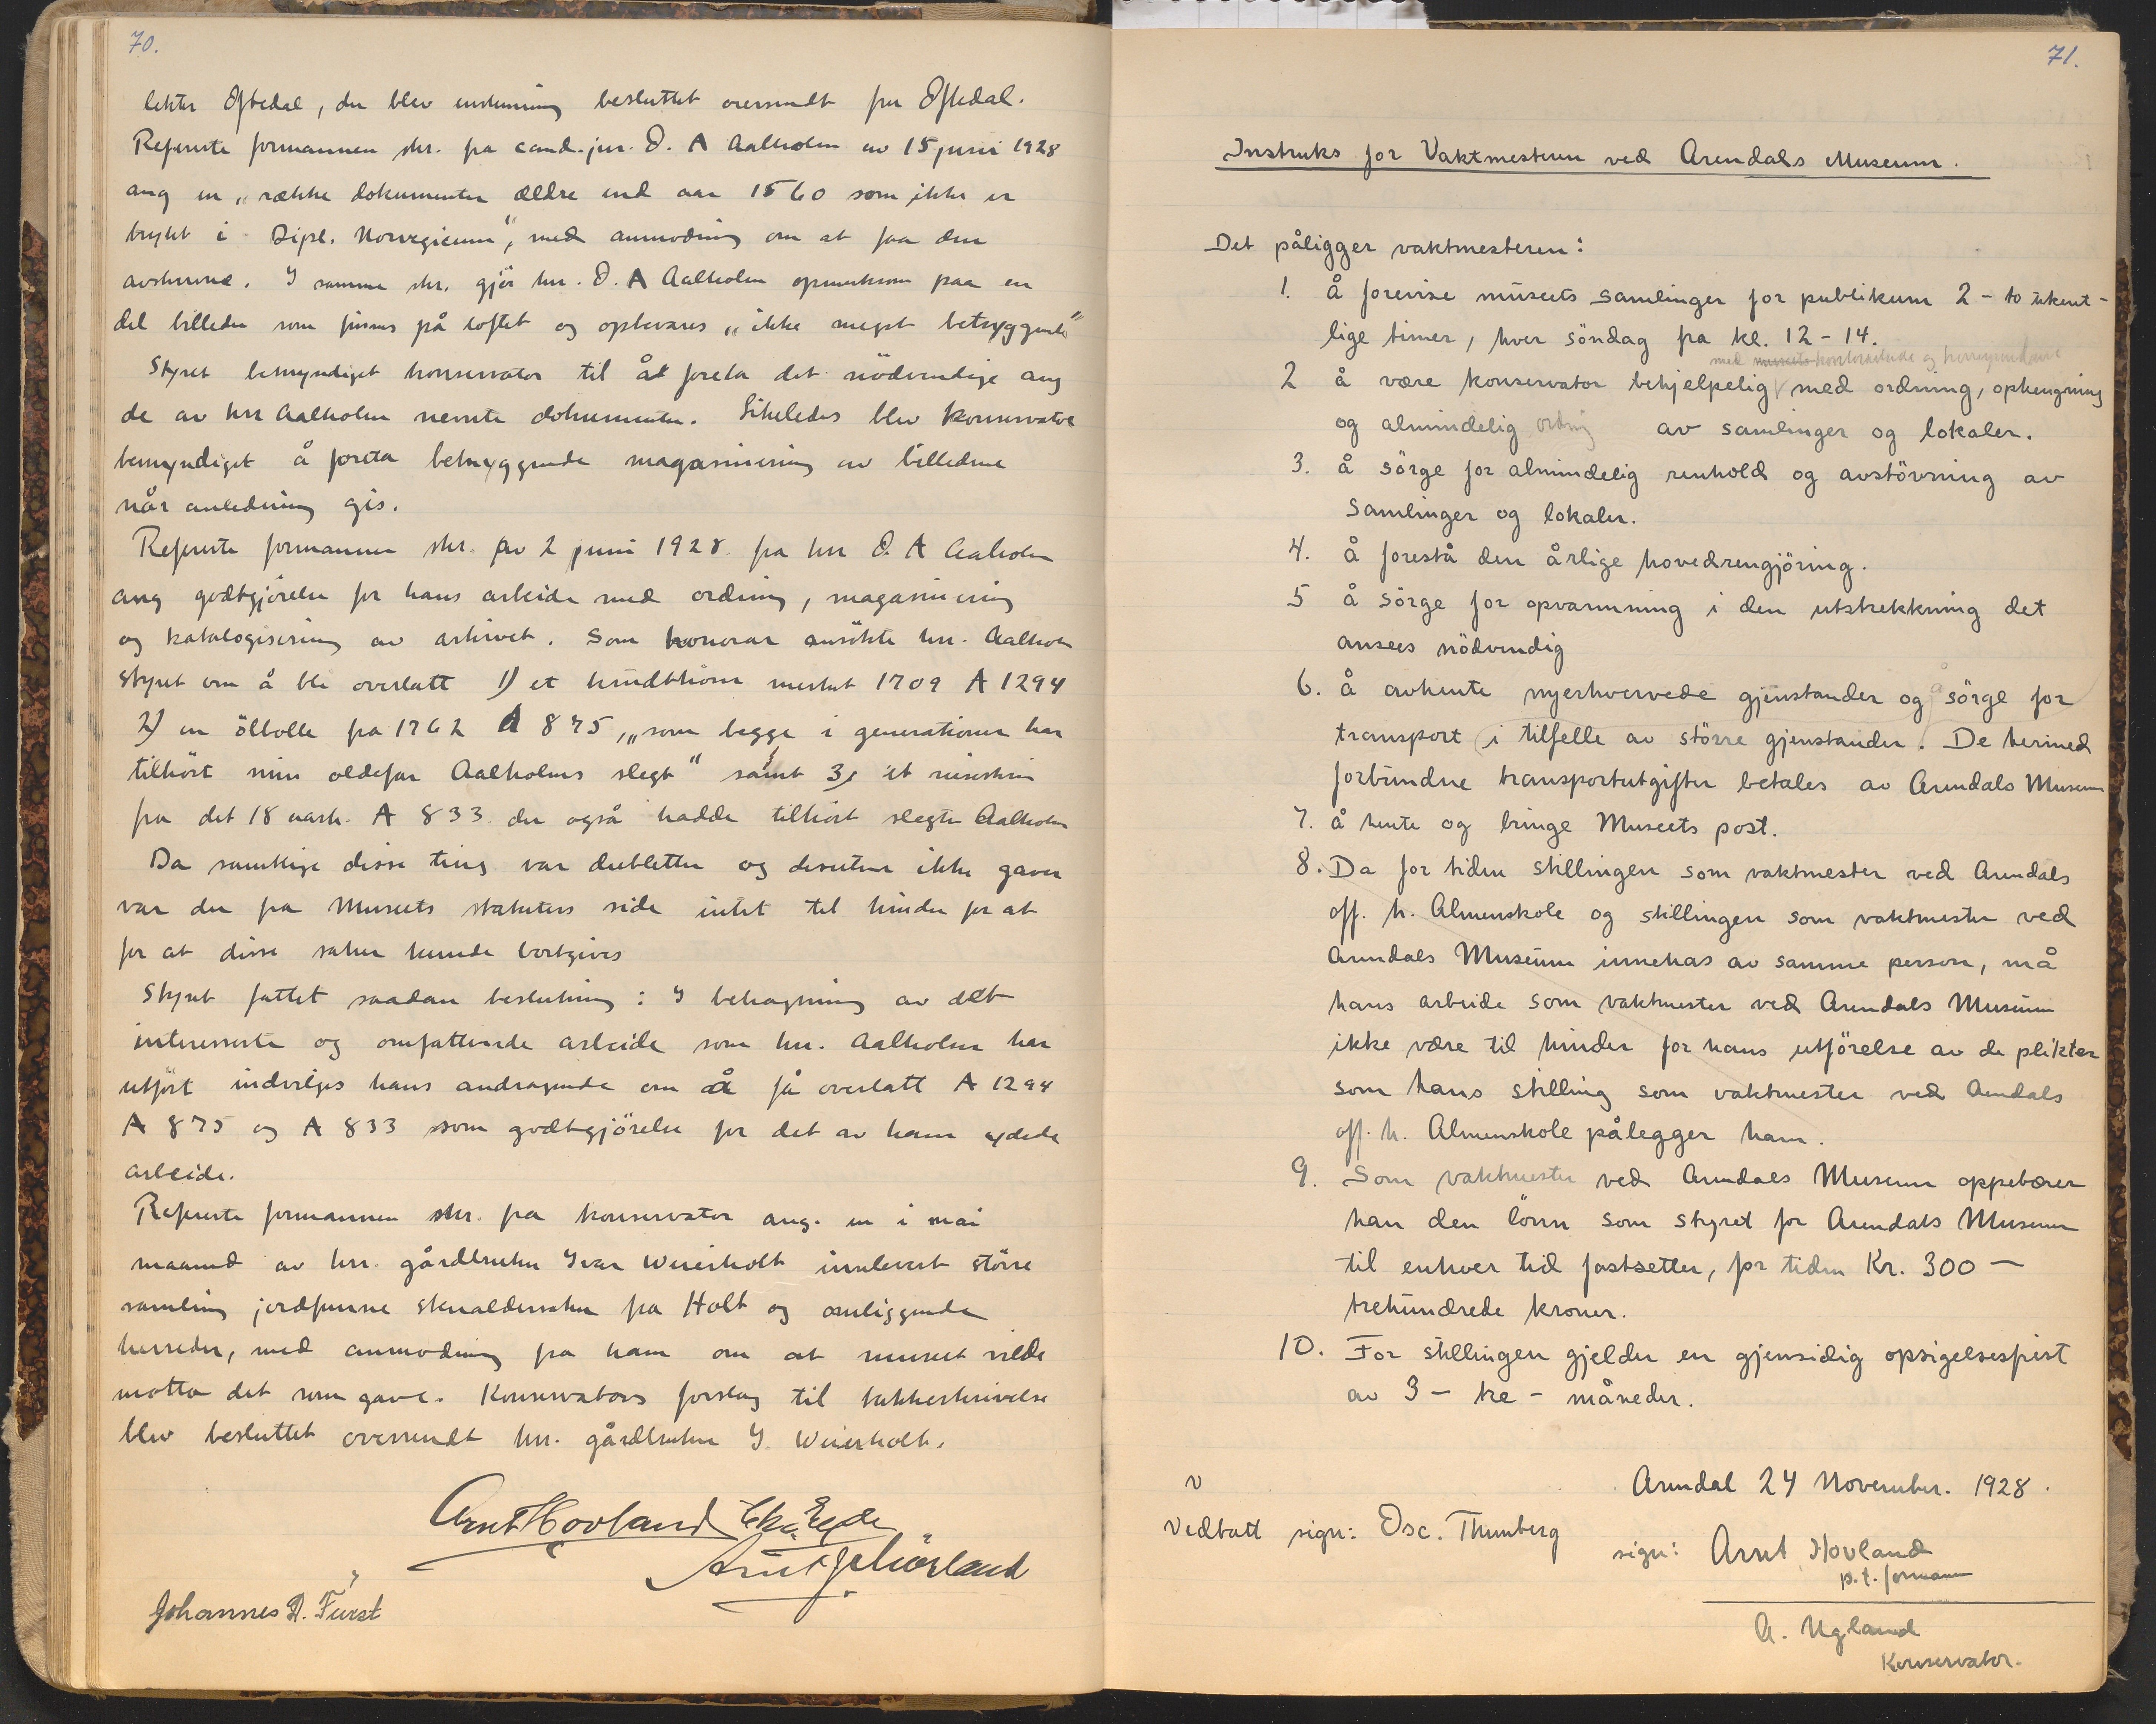 70.
lektor Oftedal, der blev enstemmig besluttet oversendt fru Oftedal.
Refererte formannen skr. fra cand. jur. O. A Aalholm av 15 juni 1928
ang en „række dokumenter ældre end aar 1560 som ikke er
trykt i Dipl. Norvegicum", med anmodning om at faa dem
avskrevne. I samme skr. gjör hr. O. A Aalholm opmerksom paa en
del billeder som finnes på loftet og opbevares „ikke meget betryggende"
Styret bemyndiget konservator til å foreta det nödvendige ang
de av hr Aalholm nevnte dokumenter. Likeledes blev konservator
bemyndiget å foreta betryggende magasinering av billedene
når anledning gis.
Refererte formannen skr. av 2 juni 1928 fra hr O. A Aalholm
ang godtgjörelse for hans arbeide med ordning, magasinering
og katalogisering av arkivet. Som honorar ansökte hr. Aalholm
styret om å bli overlatt 1) et krudthorn merket 1709 A 1294
2) en ölbolle fra 1762 A 875, „som begge i generationer har
tilhört min oldefar Aalholms slegt" samt 3, et reiseskrin
fra det 18 aarh. A 833 der også hadde tilhört slegten Aalholm
Da samtlige disse ting var dubletter og desuten ikke gaver
var der fra Museets statuters side intet til hinder for at
for at disse saker kunde bortgives
Styret fattet saadan beslutning: I betragtning av det
interesserte og omfattende arbeide som hr. Aalholm har
utfört indvilges hans andragende om å få overlatt A 1294
A 875 og A 833 som godtgjörelse for det av ham ydede
arbeide.
Refererte formannen skr. fra konservator ang. en i mai
maaned av hr. gårdbruker Ivar Weierholt innlevert större
samling jordfunne stenalderssaker fra Holt og omliggende
herreder, med anmodning fra ham om at museet vilde
motta det som gave. Konservators forslag til takkeskrivelse
blev besluttet oversendt hr. gårdbruker I. Weierholt.
Arnt Hovland
Johannes A. Fürst
71.
Instruks for Vaktmesteren ved Arendals Museum.
Det påligger vaktmesteren:
1. å forevise museets samlinger for publikum 2 - to ukent-
lige timer, hver söndag fra kl. 12 - 14.
med museets kontorarbeide og
2 å være konservator behjelpelig med ordning, ophengning
og almindelig ordning av samlinger og lokaler.
3. å sörge for almindelig renhold og avstövning av
samlinger og lokaler.
4. å forestå den årlige hovedrengjöring.
5 å sörge for opvarmning i den utstrekkning det
ansees nödvendig
6. å avhente nyerhvervede gjenstander og å sörge for
transport i tilfelle av större gjenstander. De hermed
forbundne transportutgifter betales av Arendals Museum
7. å hente og bringe Museets post.
8. Da for tiden stillingen som vaktmester ved Arendals
off. h. Almenskole og stillingen som vaktmester ved
Arendals Museum innehas av samme person, må
hans arbeide som vaktmester ved Arendals Museum
ikke være til hinder for hans utförelse av de plikter
som hans stilling som vaktmester ved Arendals
off. h. Almenskole pålegger ham.
9. Som vaktmester ved Arendals Museum oppebærer
han den lönn som styret for Arendals Museum
til enhver tid fastsetter, for tiden Kr. 300 —
trehundrede kroner.
10. For stillingen gjelder en gjensidig opsigelsesfrist
av 3 - tre - måneder.
v
Arendal 24 November. 1928.
Vedtatt sign: Osc. Thunberg
sign: Arnt Hovland
p.t. formann
A. Ugland
Konservator.